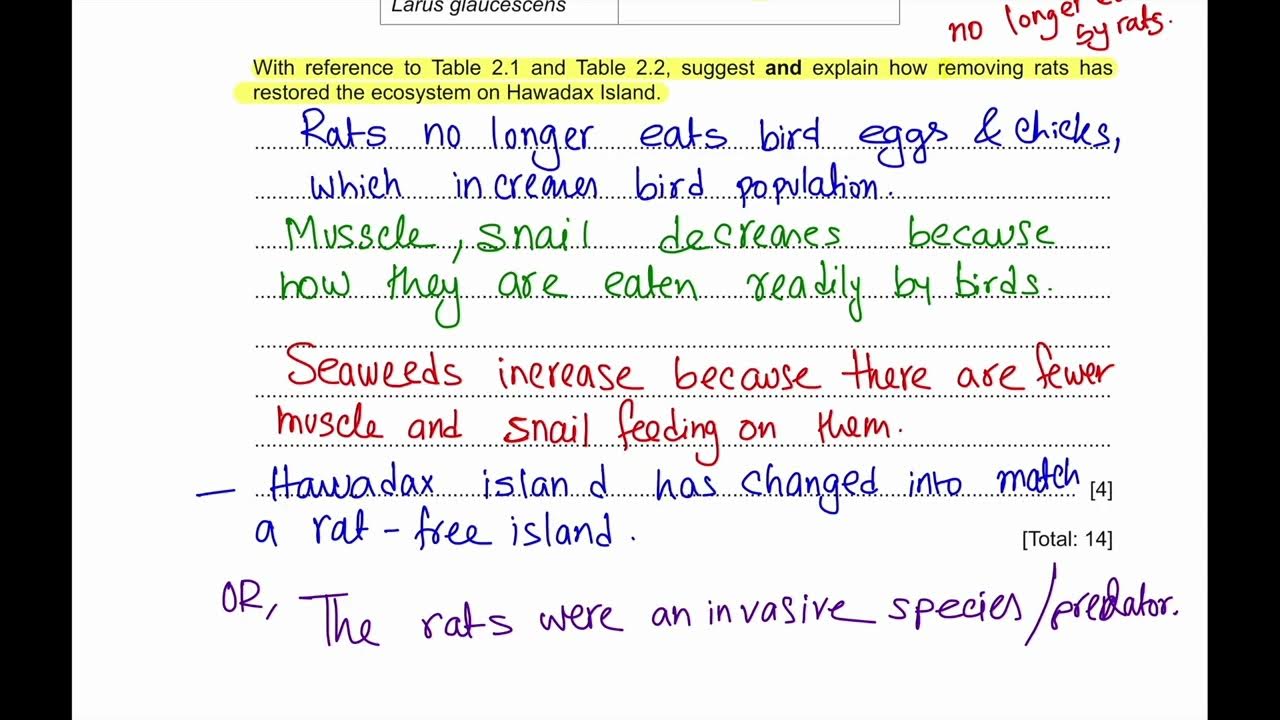 Larus glaucescens
no longer
by rats.
With reference to Table 2.1 and Table 2.2, suggest and explain how removing rats has
restored the ecosystem on Hawadax Island.
Rats no longer eats bird eggs & chicks,
which increases bird population.
Musscle, snail decreases because
now they are eaten readily by birds.
Seaweeds increase because there are fewer
muscle and snail feeding on them.
– Hawadax island has changed into match [4]
a rat-free island.
[Total: 14]
OR, The rats were an invasive species/predator.